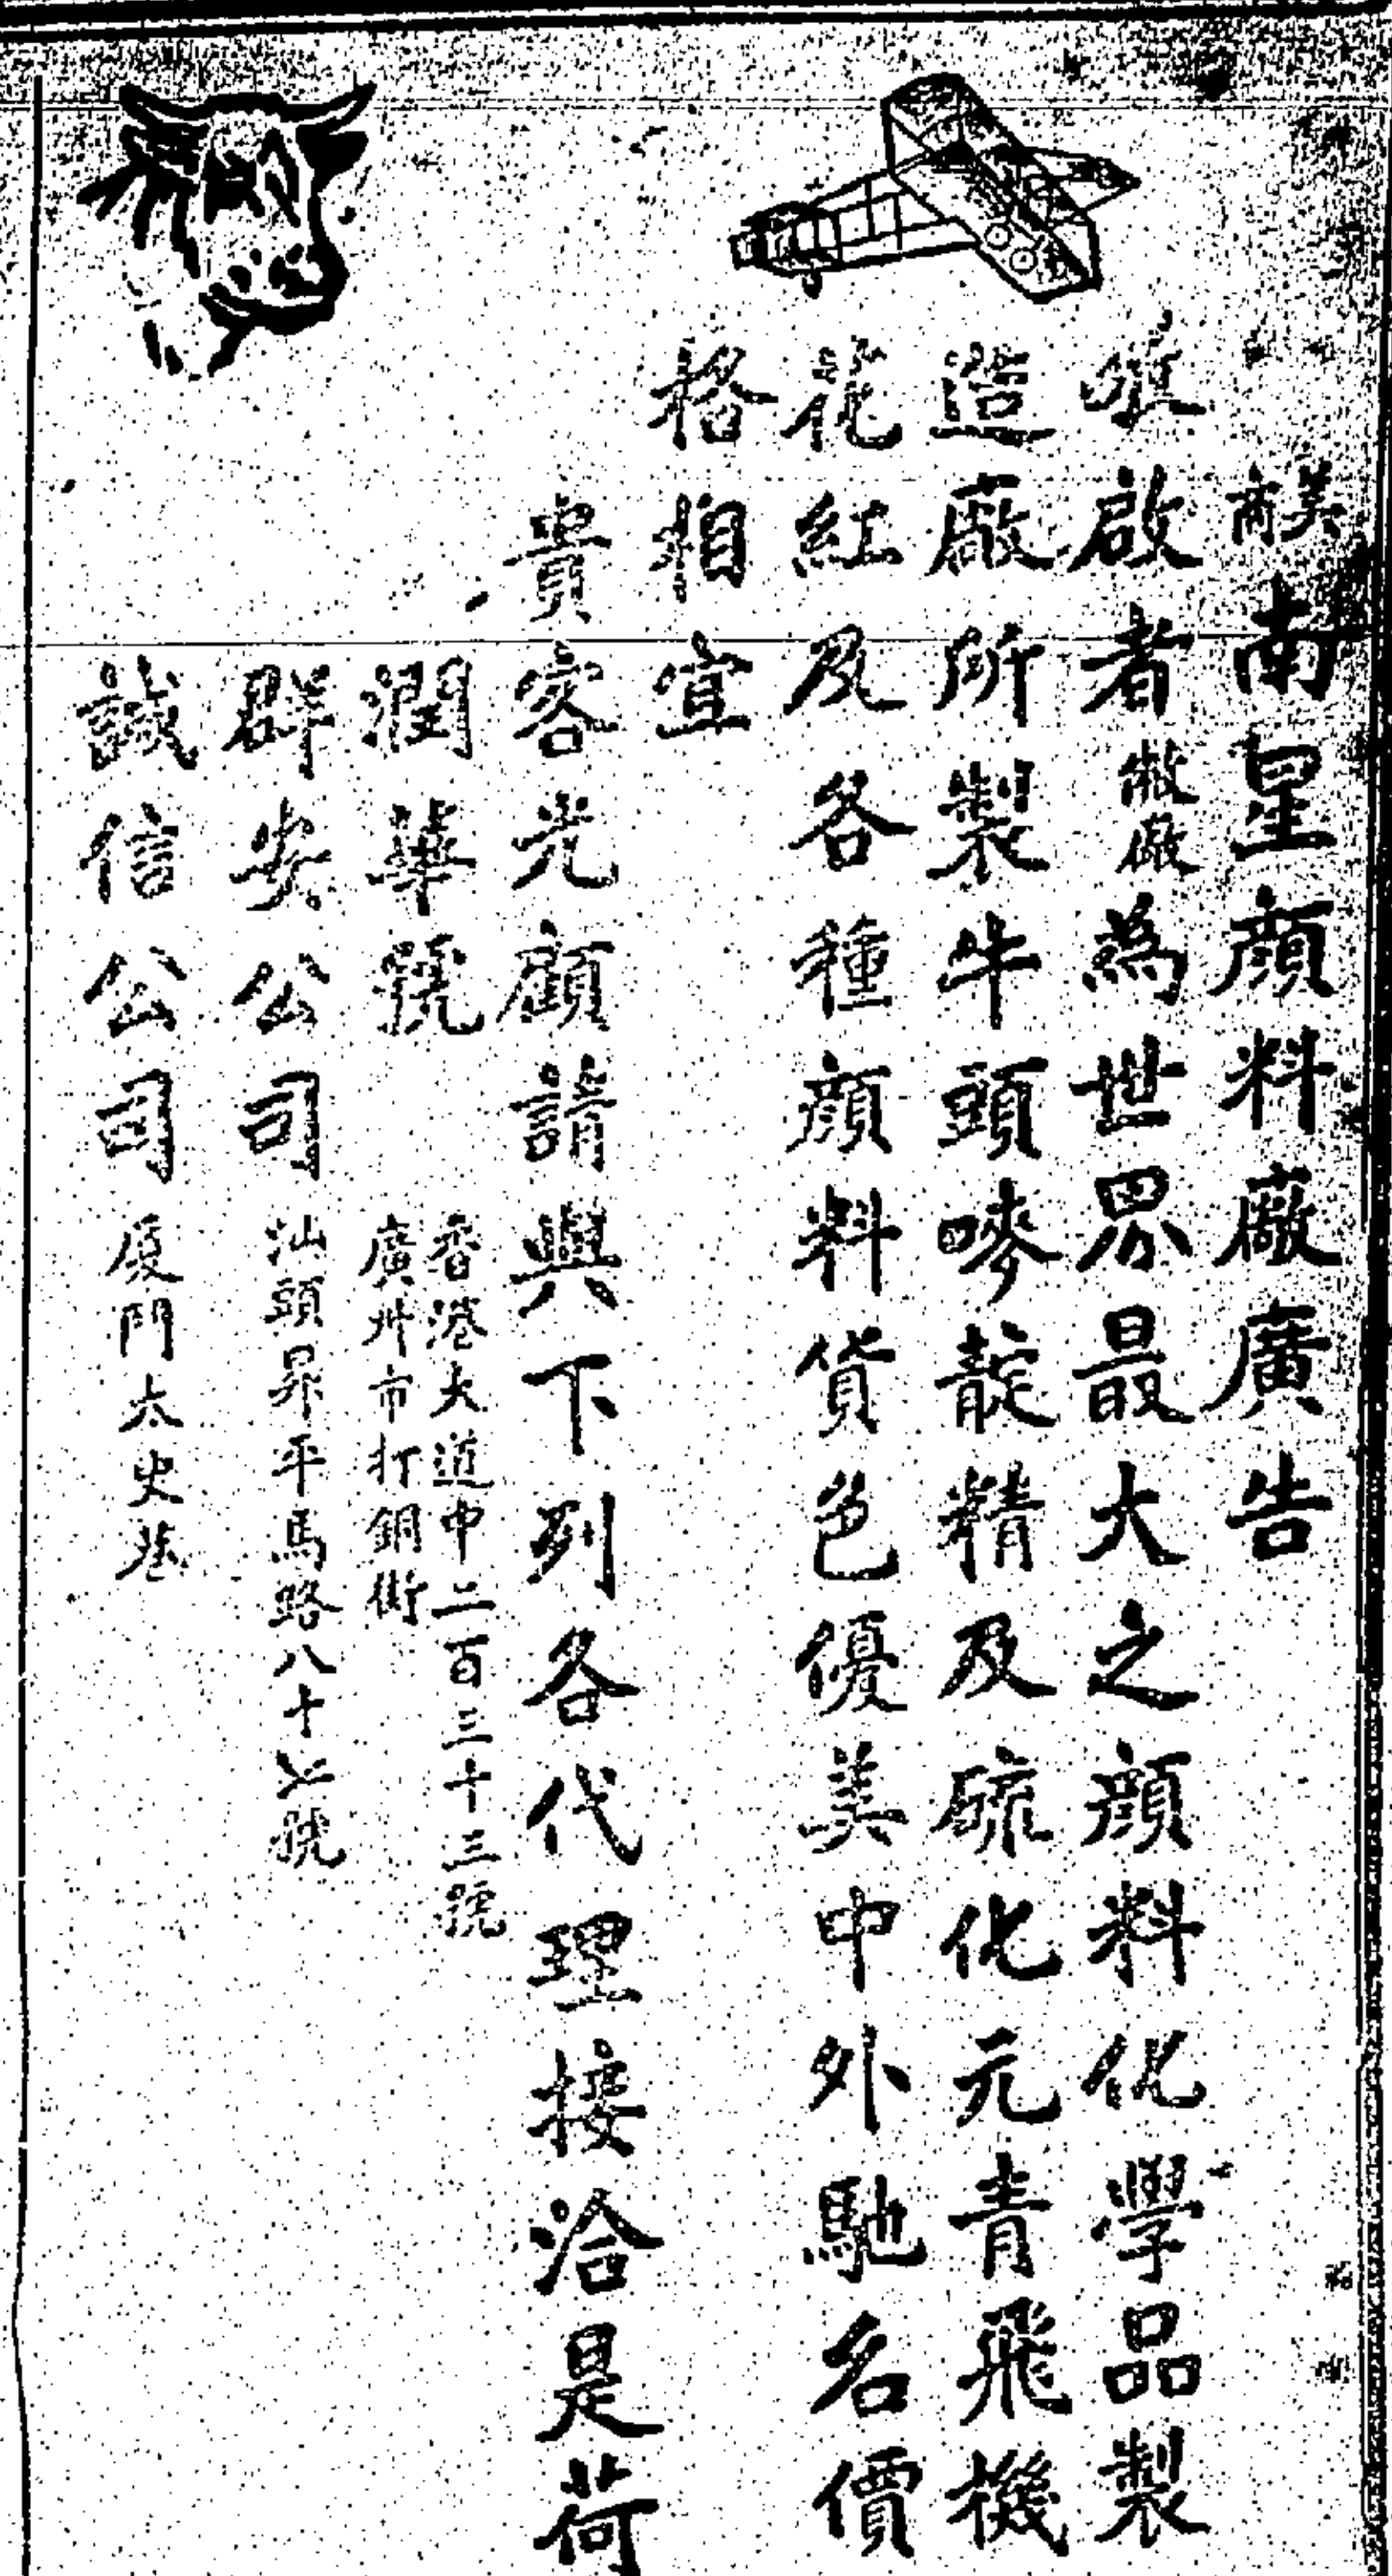 美商南星顏料廠廣告
啟者敝廠為世界最大之顏料化學品製
造廠所製牛頭嘜靛精及硫化元青飛機
花紅及各種顏料貨色優美中外馳名價
格相宜
貴客光顧請與下列各代理接洽是荷
潤華號
香港大道中二百三十三號
廣州市打銅街
群安公司 汕頭昇平馬路八十號
誠信公司 廈門太史巷